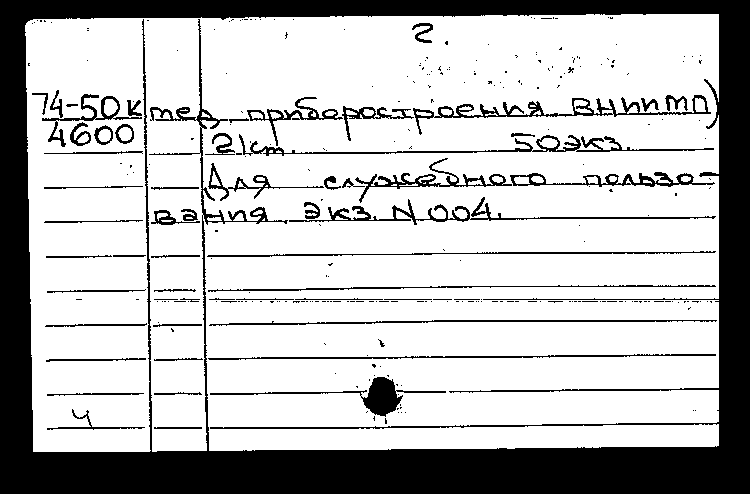 2.
74-50к мед. приборостроения ВНИИМП)
4600 21ст. 50экз.
Для служебного пользо-
вания экз. N 004.
ч